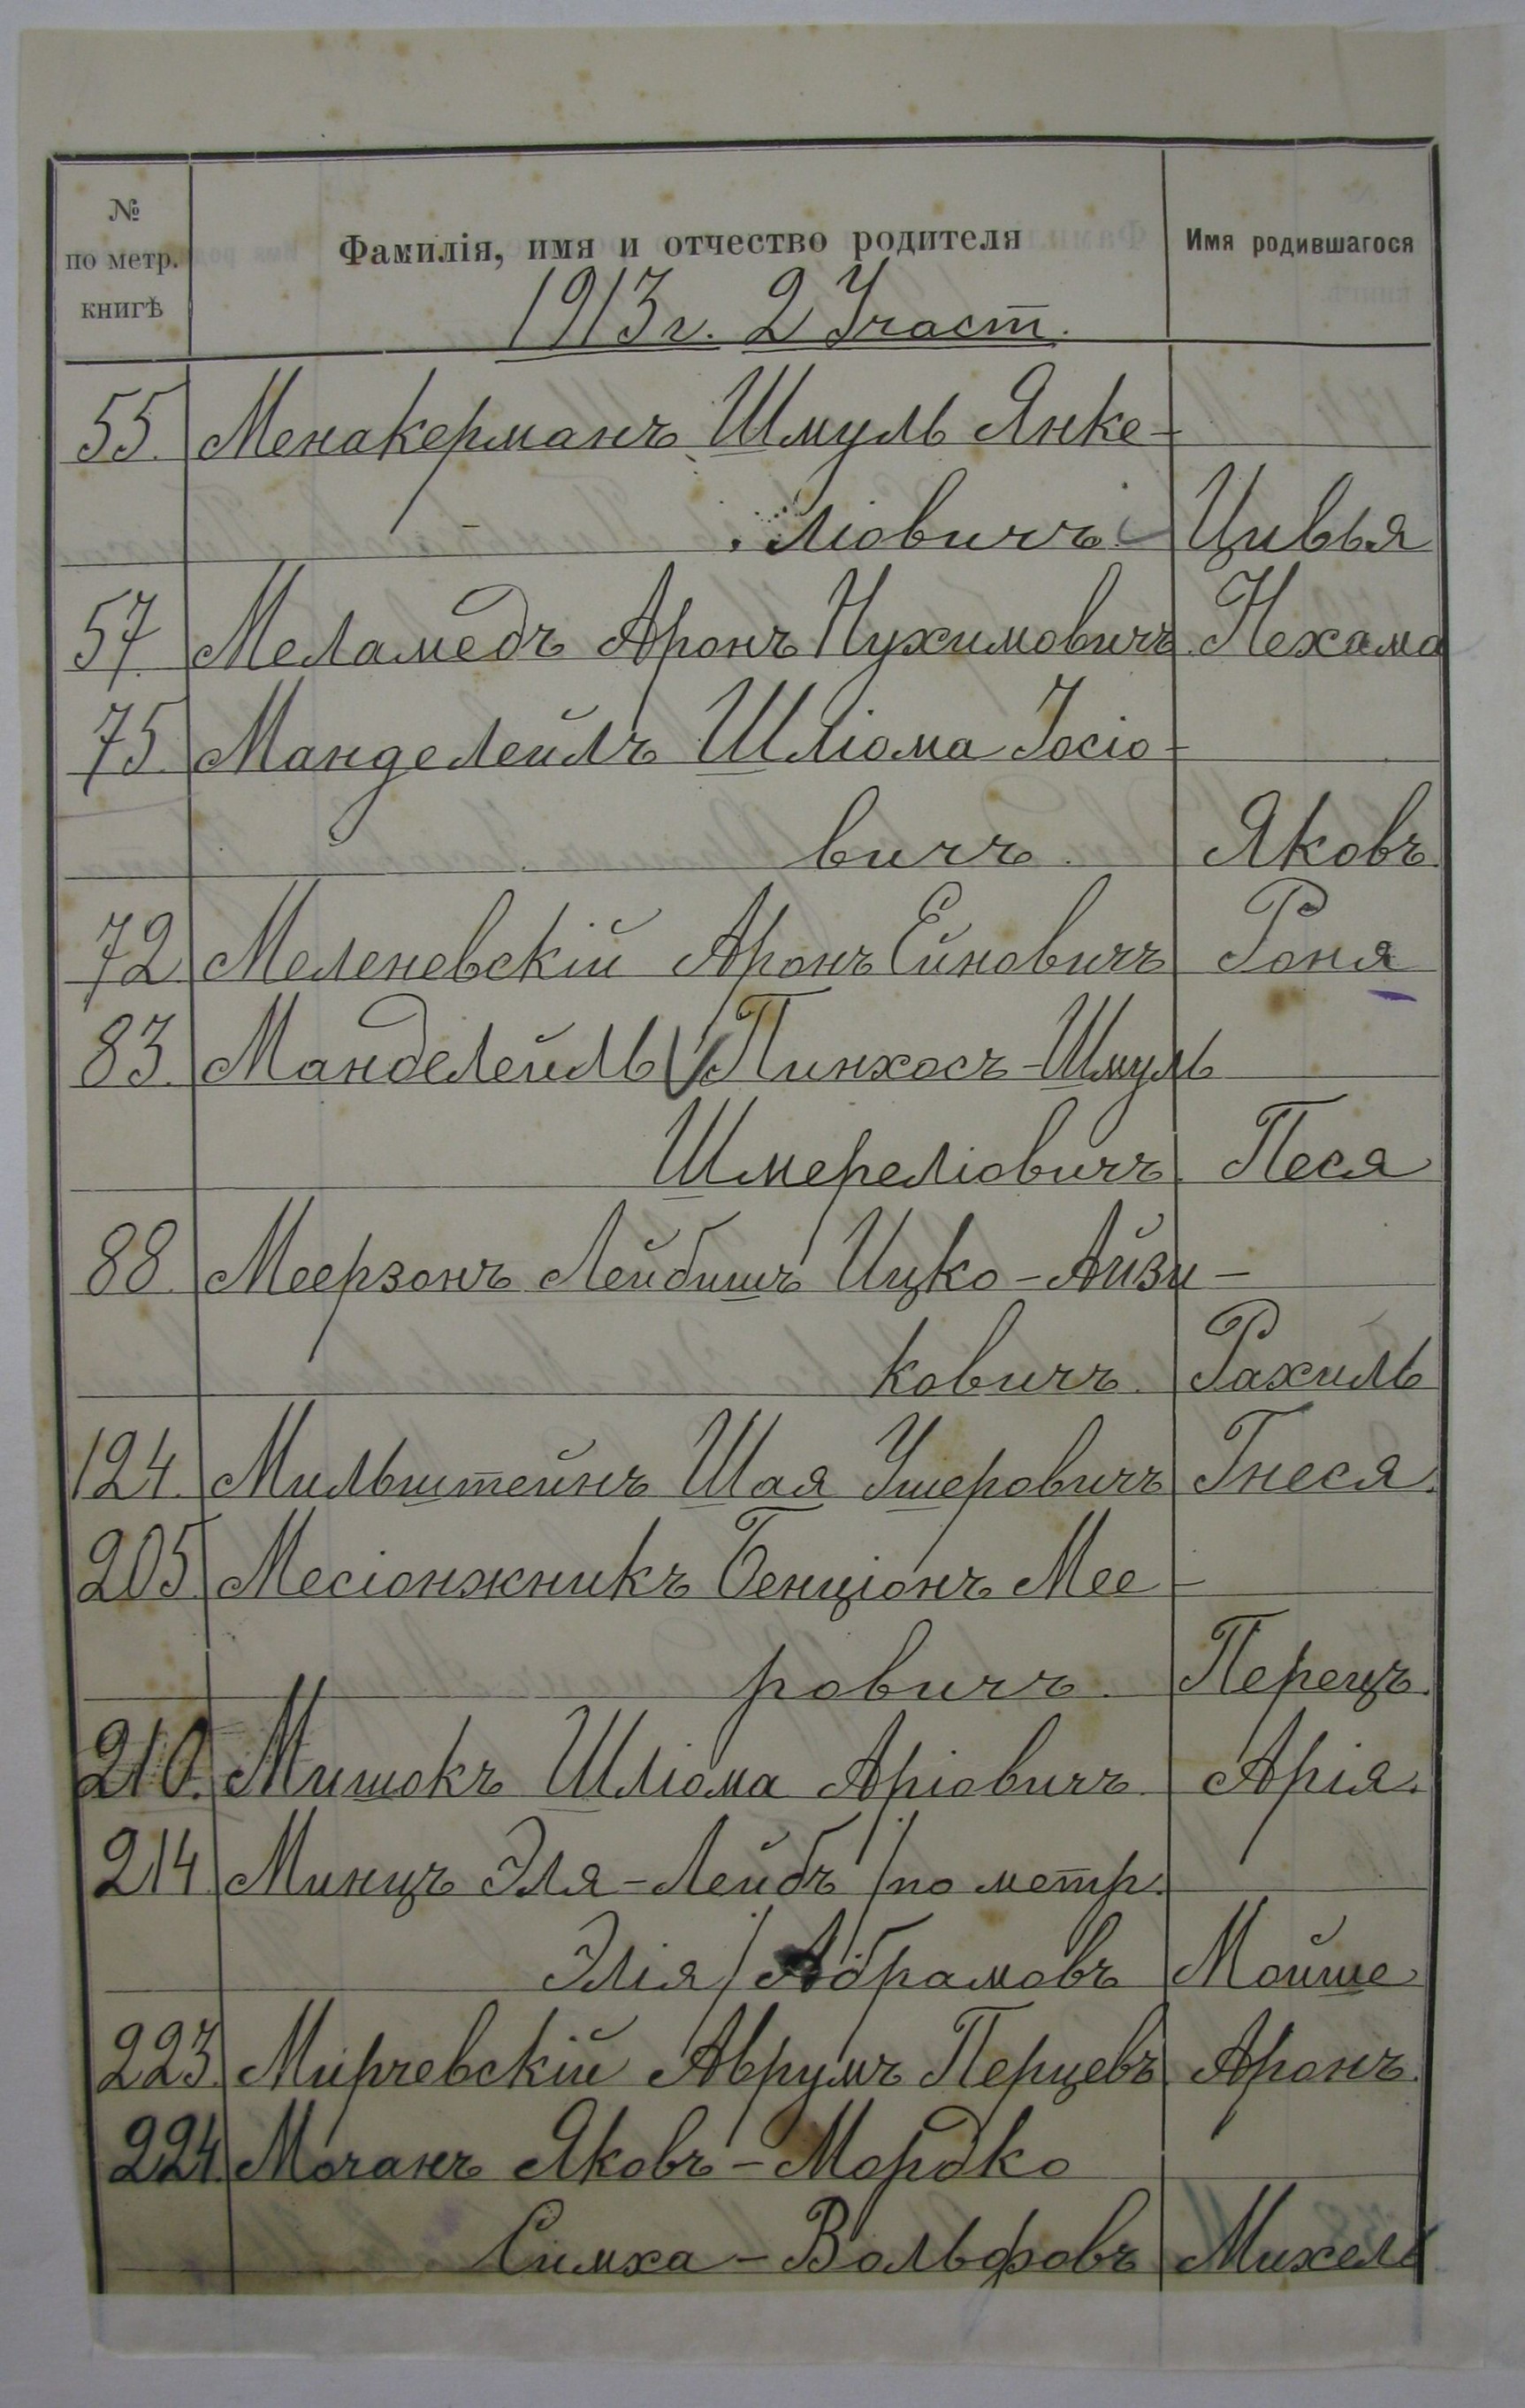 № по метр. книгѣ
Фамилія, имя и отчество родителя
Имя родившагося
1913 г. 2 Участ.
55. Менакерманъ Шмуль Янке-
ліовичъ. Цивья
57. Меламедъ Аронъ Нухимовичъ. Нехама
75. Манделейлъ Шліома Іосіо-
вичъ. Яковъ.
72. Меленевскій Аронъ Ейновичъ Роня
83. Манделейль Пинхосъ-Шмуль
Шмереліовичъ. Песя
88. Меерзонъ Лейбишъ Ицко-Айзи-
ковичъ. Рахиль
124. Мильштейнъ Шая Ушеровичъ Гнеся.
205. Месіонжникъ Бенціонъ Мее-
ровичъ. Перецъ.
210. Мишокъ Шліома Аріовичъ. Арія.
214. Минцъ Эля-Лейбъ /по метр.
Элія/ Абрамовъ Мойше
223. Мирчевскій Аврумъ Перцевъ. Аронъ.
224. Мочанъ Яковъ-Мордко
Симха-Вольфовъ Михель